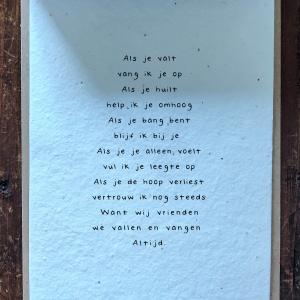 Als je valt
vang ik je op
Als je huilt
help ik je omhoog
Als je bang bent
blijf ik bij je
Als je je alleen voelt
vul ik je leegte op
Als je de hoop verliest
vertrouw ik nog steeds
Want wij vrienden
we vallen en vangen
Altijd.